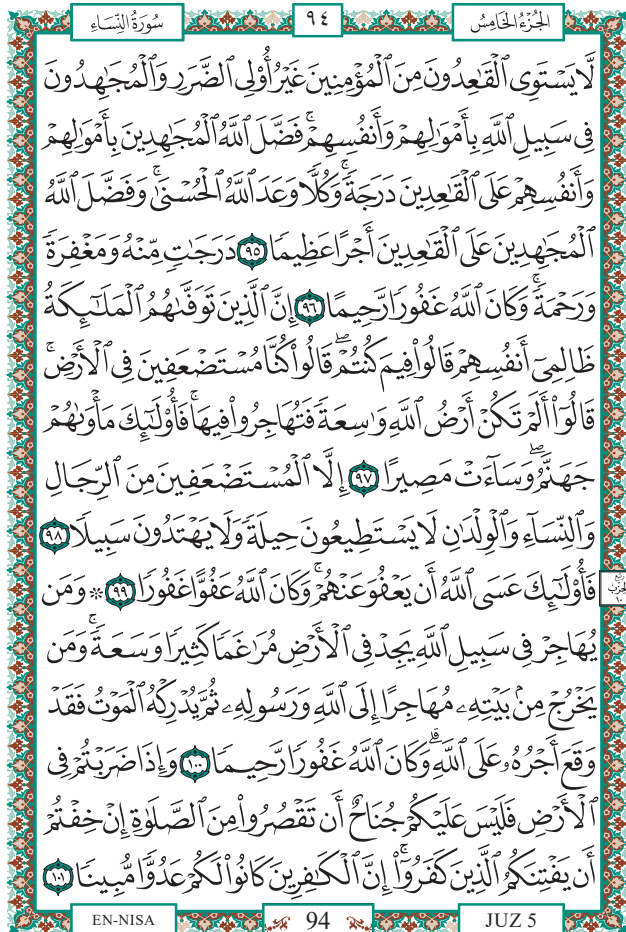 الجُزْءُ الخَامِسُ ٩٤ سُورَةُ النِّسَاءِ
لَّا يَسْتَوِى ٱلْقَـٰعِدُونَ مِنَ ٱلْمُؤْمِنِينَ غَيْرُ أُو۟لِى ٱلضَّرَرِ وَٱلْمُجَـٰهِدُونَ
فِى سَبِيلِ ٱللَّهِ بِأَمْوَٰلِهِمْ وَأَنفُسِهِمْ ۚ فَضَّلَ ٱللَّهُ ٱلْمُجَـٰهِدِينَ بِأَمْوَٰلِهِمْ
وَأَنفُسِهِمْ عَلَى ٱلْقَـٰعِدِينَ دَرَجَةً ۚ وَكُلًّا وَعَدَ ٱللَّهُ ٱلْحُسْنَىٰ ۚ وَفَضَّلَ ٱللَّهُ
ٱلْمُجَـٰهِدِينَ عَلَى ٱلْقَـٰعِدِينَ أَجْرًا عَظِيمًا ٩٥ دَرَجَـٰتٍ مِّنْهُ وَمَغْفِرَةً
وَرَحْمَةً ۚ وَكَانَ ٱللَّهُ غَفُورًا رَّحِيمًا ٩٦ إِنَّ ٱلَّذِينَ تَوَفَّىٰهُمُ ٱلْمَلَـٰٓئِكَةُ
ظَالِمِىٓ أَنفُسِهِمْ قَالُوا۟ فِيمَ كُنتُمْ ۖ قَالُوا۟ كُنَّا مُسْتَضْعَفِينَ فِى ٱلْأَرْضِ ۚ
قَالُوٓا۟ أَلَمْ تَكُنْ أَرْضُ ٱللَّهِ وَٰسِعَةً فَتُهَاجِرُوا۟ فِيهَا ۚ فَأُو۟لَـٰٓئِكَ مَأْوَىٰهُمْ
جَهَنَّمُ ۖ وَسَآءَتْ مَصِيرًا ٩٧ إِلَّا ٱلْمُسْتَضْعَفِينَ مِنَ ٱلرِّجَالِ
وَٱلنِّسَآءِ وَٱلْوِلْدَٰنِ لَا يَسْتَطِيعُونَ حِيلَةً وَلَا يَهْتَدُونَ سَبِيلًا ٩٨
فَأُو۟لَـٰٓئِكَ عَسَى ٱللَّهُ أَن يَعْفُوَ عَنْهُمْ ۚ وَكَانَ ٱللَّهُ عَفُوًّا غَفُورًا ٩٩ ۞ وَمَن
يُهَاجِرْ فِى سَبِيلِ ٱللَّهِ يَجِدْ فِى ٱلْأَرْضِ مُرَٰغَمًا كَثِيرًا وَسَعَةً ۚ وَمَن
يَخْرُجْ مِنۢ بَيْتِهِۦ مُهَاجِرًا إِلَى ٱللَّهِ وَرَسُولِهِۦ ثُمَّ يُدْرِكْهُ ٱلْمَوْتُ فَقَدْ
وَقَعَ أَجْرُهُۥ عَلَى ٱللَّهِ ۗ وَكَانَ ٱللَّهُ غَفُورًا رَّحِيمًا ١٠٠ وَإِذَا ضَرَبْتُمْ فِى
ٱلْأَرْضِ فَلَيْسَ عَلَيْكُمْ جُنَاحٌ أَن تَقْصُرُوا۟ مِنَ ٱلصَّلَوٰةِ إِنْ خِفْتُمْ
أَن يَفْتِنَكُمُ ٱلَّذِينَ كَفَرُوٓا۟ ۚ إِنَّ ٱلْكَـٰفِرِينَ كَانُوا۟ لَكُمْ عَدُوًّا مُّبِينًا ١٠١
EN-NISA 94 JUZ 5